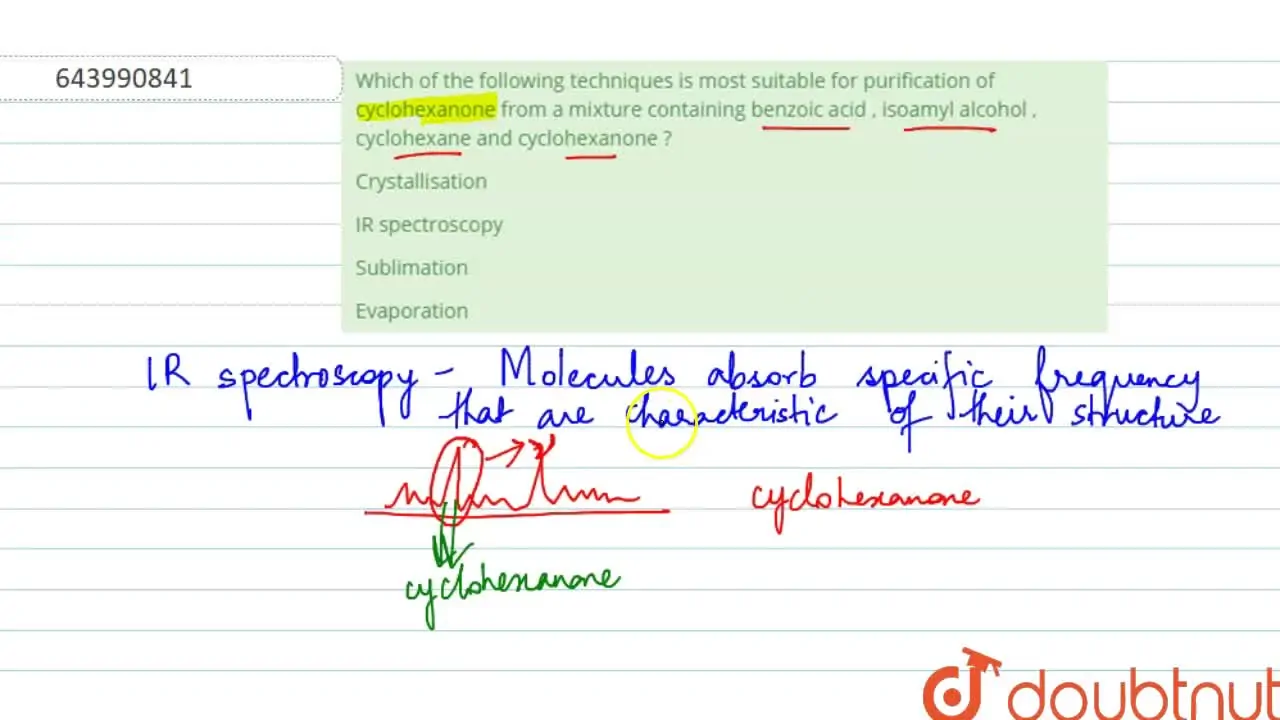 643990841
Which of the following techniques is most suitable for purification of
cyclohexanone from a mixture containing benzoic acid , isoamyl alcohol ,
cyclohexane and cyclohexanone ?
Crystallisation
IR spectroscopy
Sublimation
Evaporation
IR spectroscopy - Molecules absorb specific frequency
that are characteristic of their structure
cyclohexanone
cyclohexanone
doubtnut